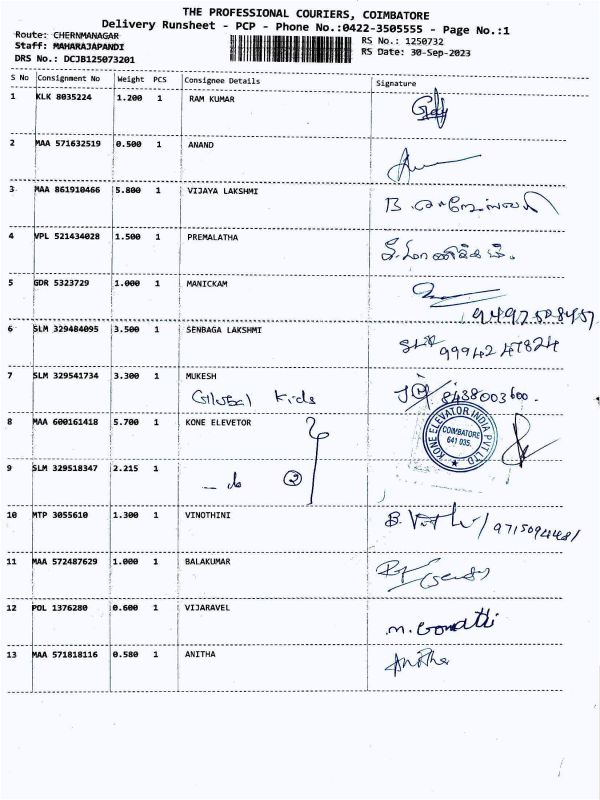 THE PROFESSIONAL COURIERS, COIMBATORE
Delivery Runsheet - PCP - Phone No.:0422-3505555 - Page No.:1
Route: CHERNMANAGAR
Staff: MAHARAJAPANDI
DRS No.: DCJB125073201
RS No.: 1250732
RS Date: 30-Sep-2023
S No Consignment No Weight PCS Consignee Details Signature
1 KLK 8035224 1.200 1 RAM KUMAR
2 MAA 571632519 0.500 1 ANAND
3 MAA 861910466 5.800 1 VIJAYA LAKSHMI
4 VPL 521434028 1.500 1 PREMALATHA
5 GDR 5323729 1.000 1 MANICKAM
9497508457
6 SLM 329484095 3.500 1 SENBAGA LAKSHMI
99942 47824
7 SLM 329541734 3.300 1 MUKESH
Global Kids 8438003600.
8 MAA 600161418 5.700 1 KONE ELEVETOR
KONE ELEVATOR INDIA PVT LTD
COIMBATORE
641 035.
9 SLM 329518347 2.215 1
do 2
10 MTP 3055610 1.300 1 VINOTHINI
11 MAA 572487629 1.000 1 BALAKUMAR
12 POL 1376280 0.600 1 VIJARAVEL
M. Gomathi
13 MAA 571818116 0.580 1 ANITHA Anitha